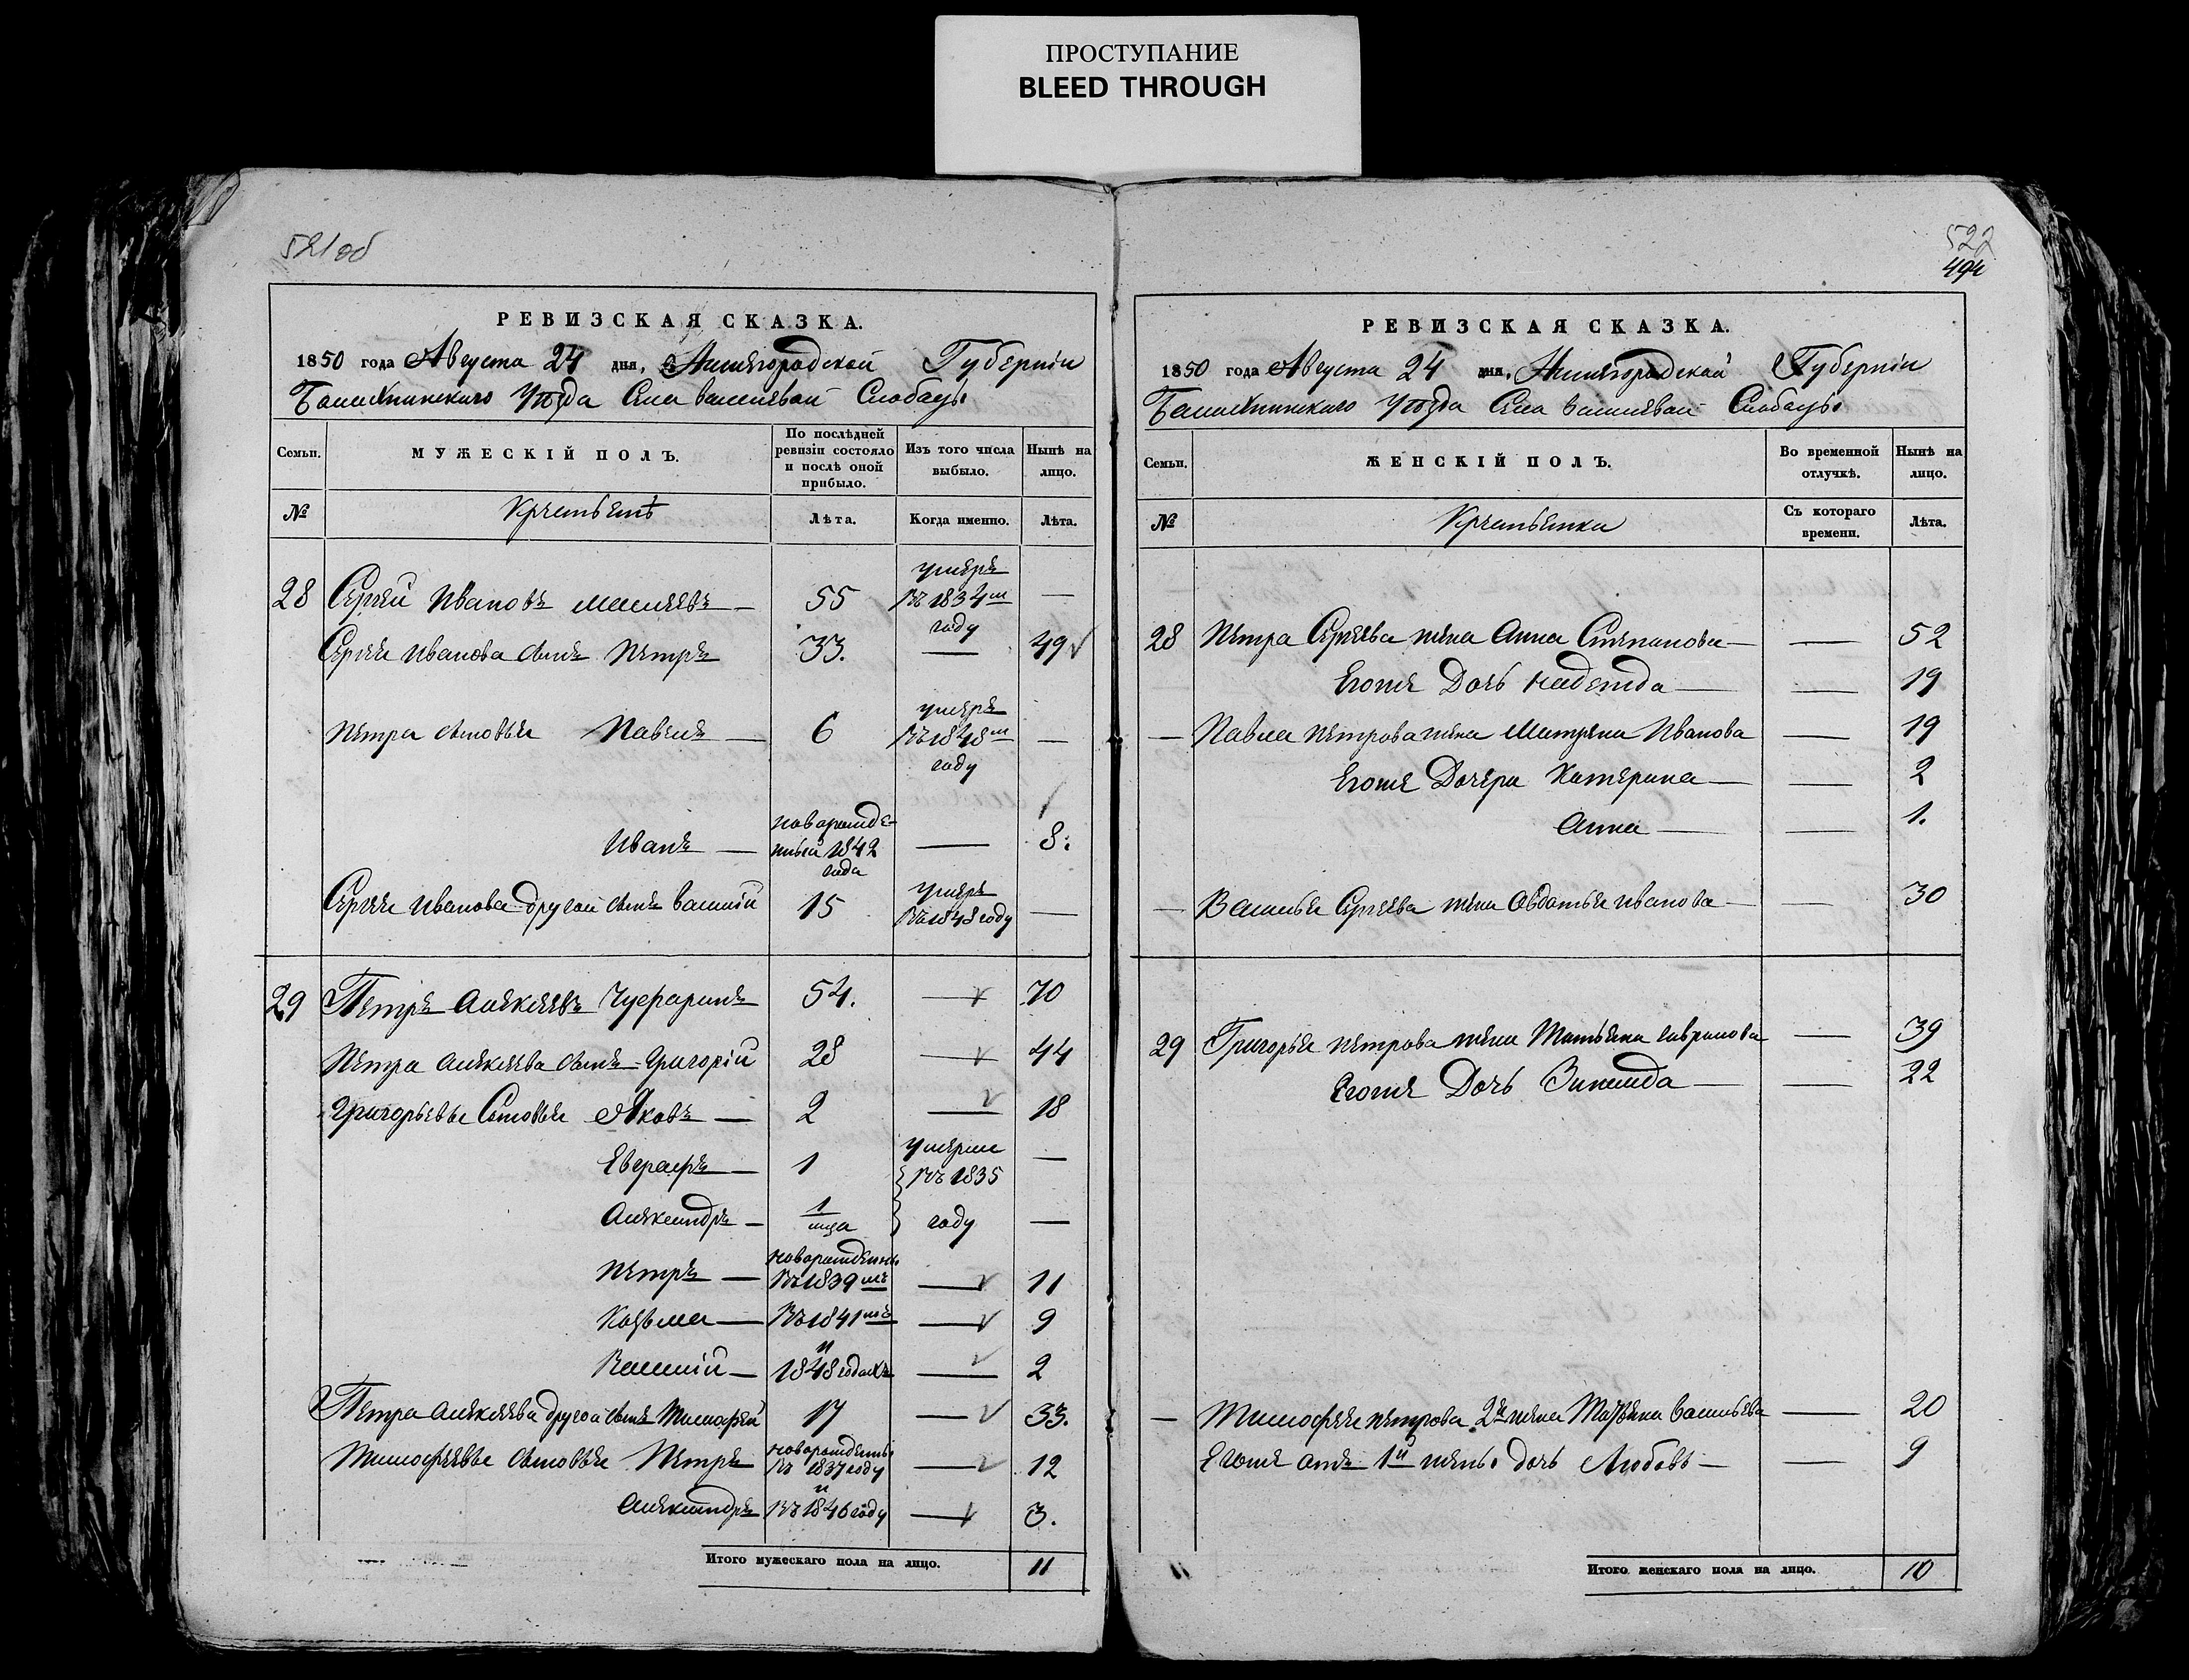 ПРОСТУПАНИЕ
BLEED THROUGH
521 об
РЕВИЗСКАЯ СКАЗКА.
1850 года Августа 24 дня, Нижегородской Губерніи
Балахнинскаго Уѣзда Села Василевой Слободы
Семьи.
МУЖЕСКІЙ ПОЛЪ.
По послѣдней ревизіи состояло и послѣ оной прибыло.
Изъ того числа выбыло.
Ныиѣ на лицо.
№
Крестьянѣ
Лѣта.
Когда именно.
Лѣта.
28 Сергѣй Ивановъ — 55 умеръ въ 1834м году —
Сергѣя Иванова сынъ Петръ 33. — 49
Петра сыновья Павелъ — 6 умеръ въ 1848м году —
Иванъ — новорожденый 1842 года — 8.
Сергѣя Иванова другой сынъ Василій 15 умеръ въ 1848 году —
29 Петръ Алексѣевъ Чуфаринъ 54. — 70
Петра Алексѣева сынъ Григорій 28 — 44
Григорьевы Сыновья Яковъ — 2 — 18
Евграфъ — 1 умерли въ 1835 году —
Александръ — 1 —
Петръ — новорожденны въ 1839мъ — 11
Козьма — въ 1841мъ — 9
Василій — и 1848 годахъ — 2
Петра Алексѣева другой сынъ Тимофей 17 — 33.
Тимофѣевы сыновья Петръ новорожденны въ 1837 году — 12
Александръ и въ 1846 году — 3.
Итого мужескаго пола на лицо. 11
522
494
РЕВИЗСКАЯ СКАЗКА.
1850 года Августа 24 дня, Нижегородской Губерніи
Балахнинскаго Уѣзда Села Василевой Слободы
Семьи.
ЖЕНСКІЙ ПОЛЪ.
Во временной отлучкѣ.
Нынѣ на лицо.
№
Крестьянки
Съ котораго времени.
Лѣта.
28 Петра Сергѣева жена Анна Степанова — — 52
Егоже Дочь Надежда — — 19
— Павла Петрова жена Матрена Иванова — 19
Егоже Дочери Катерина — — 2
Анна — — 1.
— Василья Сергѣева жена Авдотья Иванова — — 30
29 Григорья Петрова жена Татьяна Гаврилова — 39
Егоже Дочь Зинаида — — 22
— Тимофѣя Петрова 2я жена Татьяна Васильева — 20
Егоже отъ 1й жены дочь Любовь — — 9
Итого женскаго пола на лицо. 10